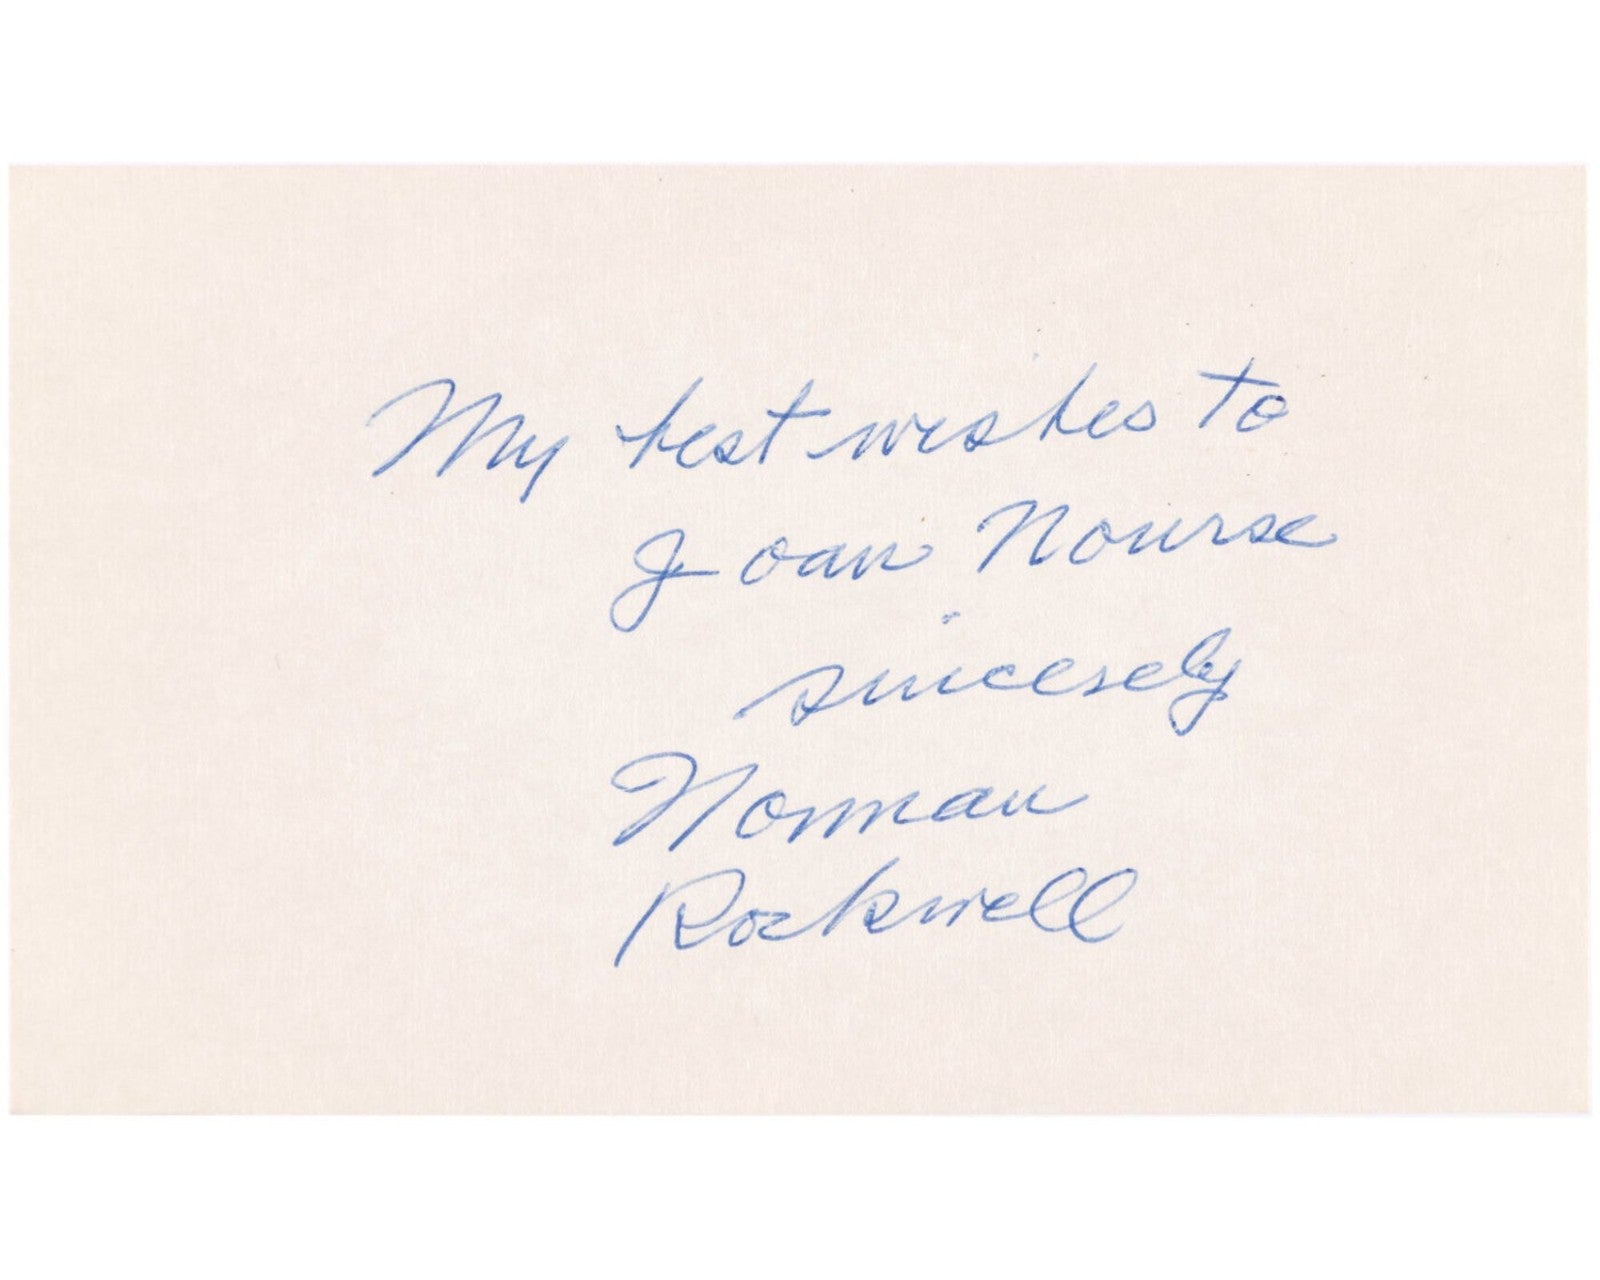 My best wishes to
Joan Nourse
sincerely
Norman
Rockwell